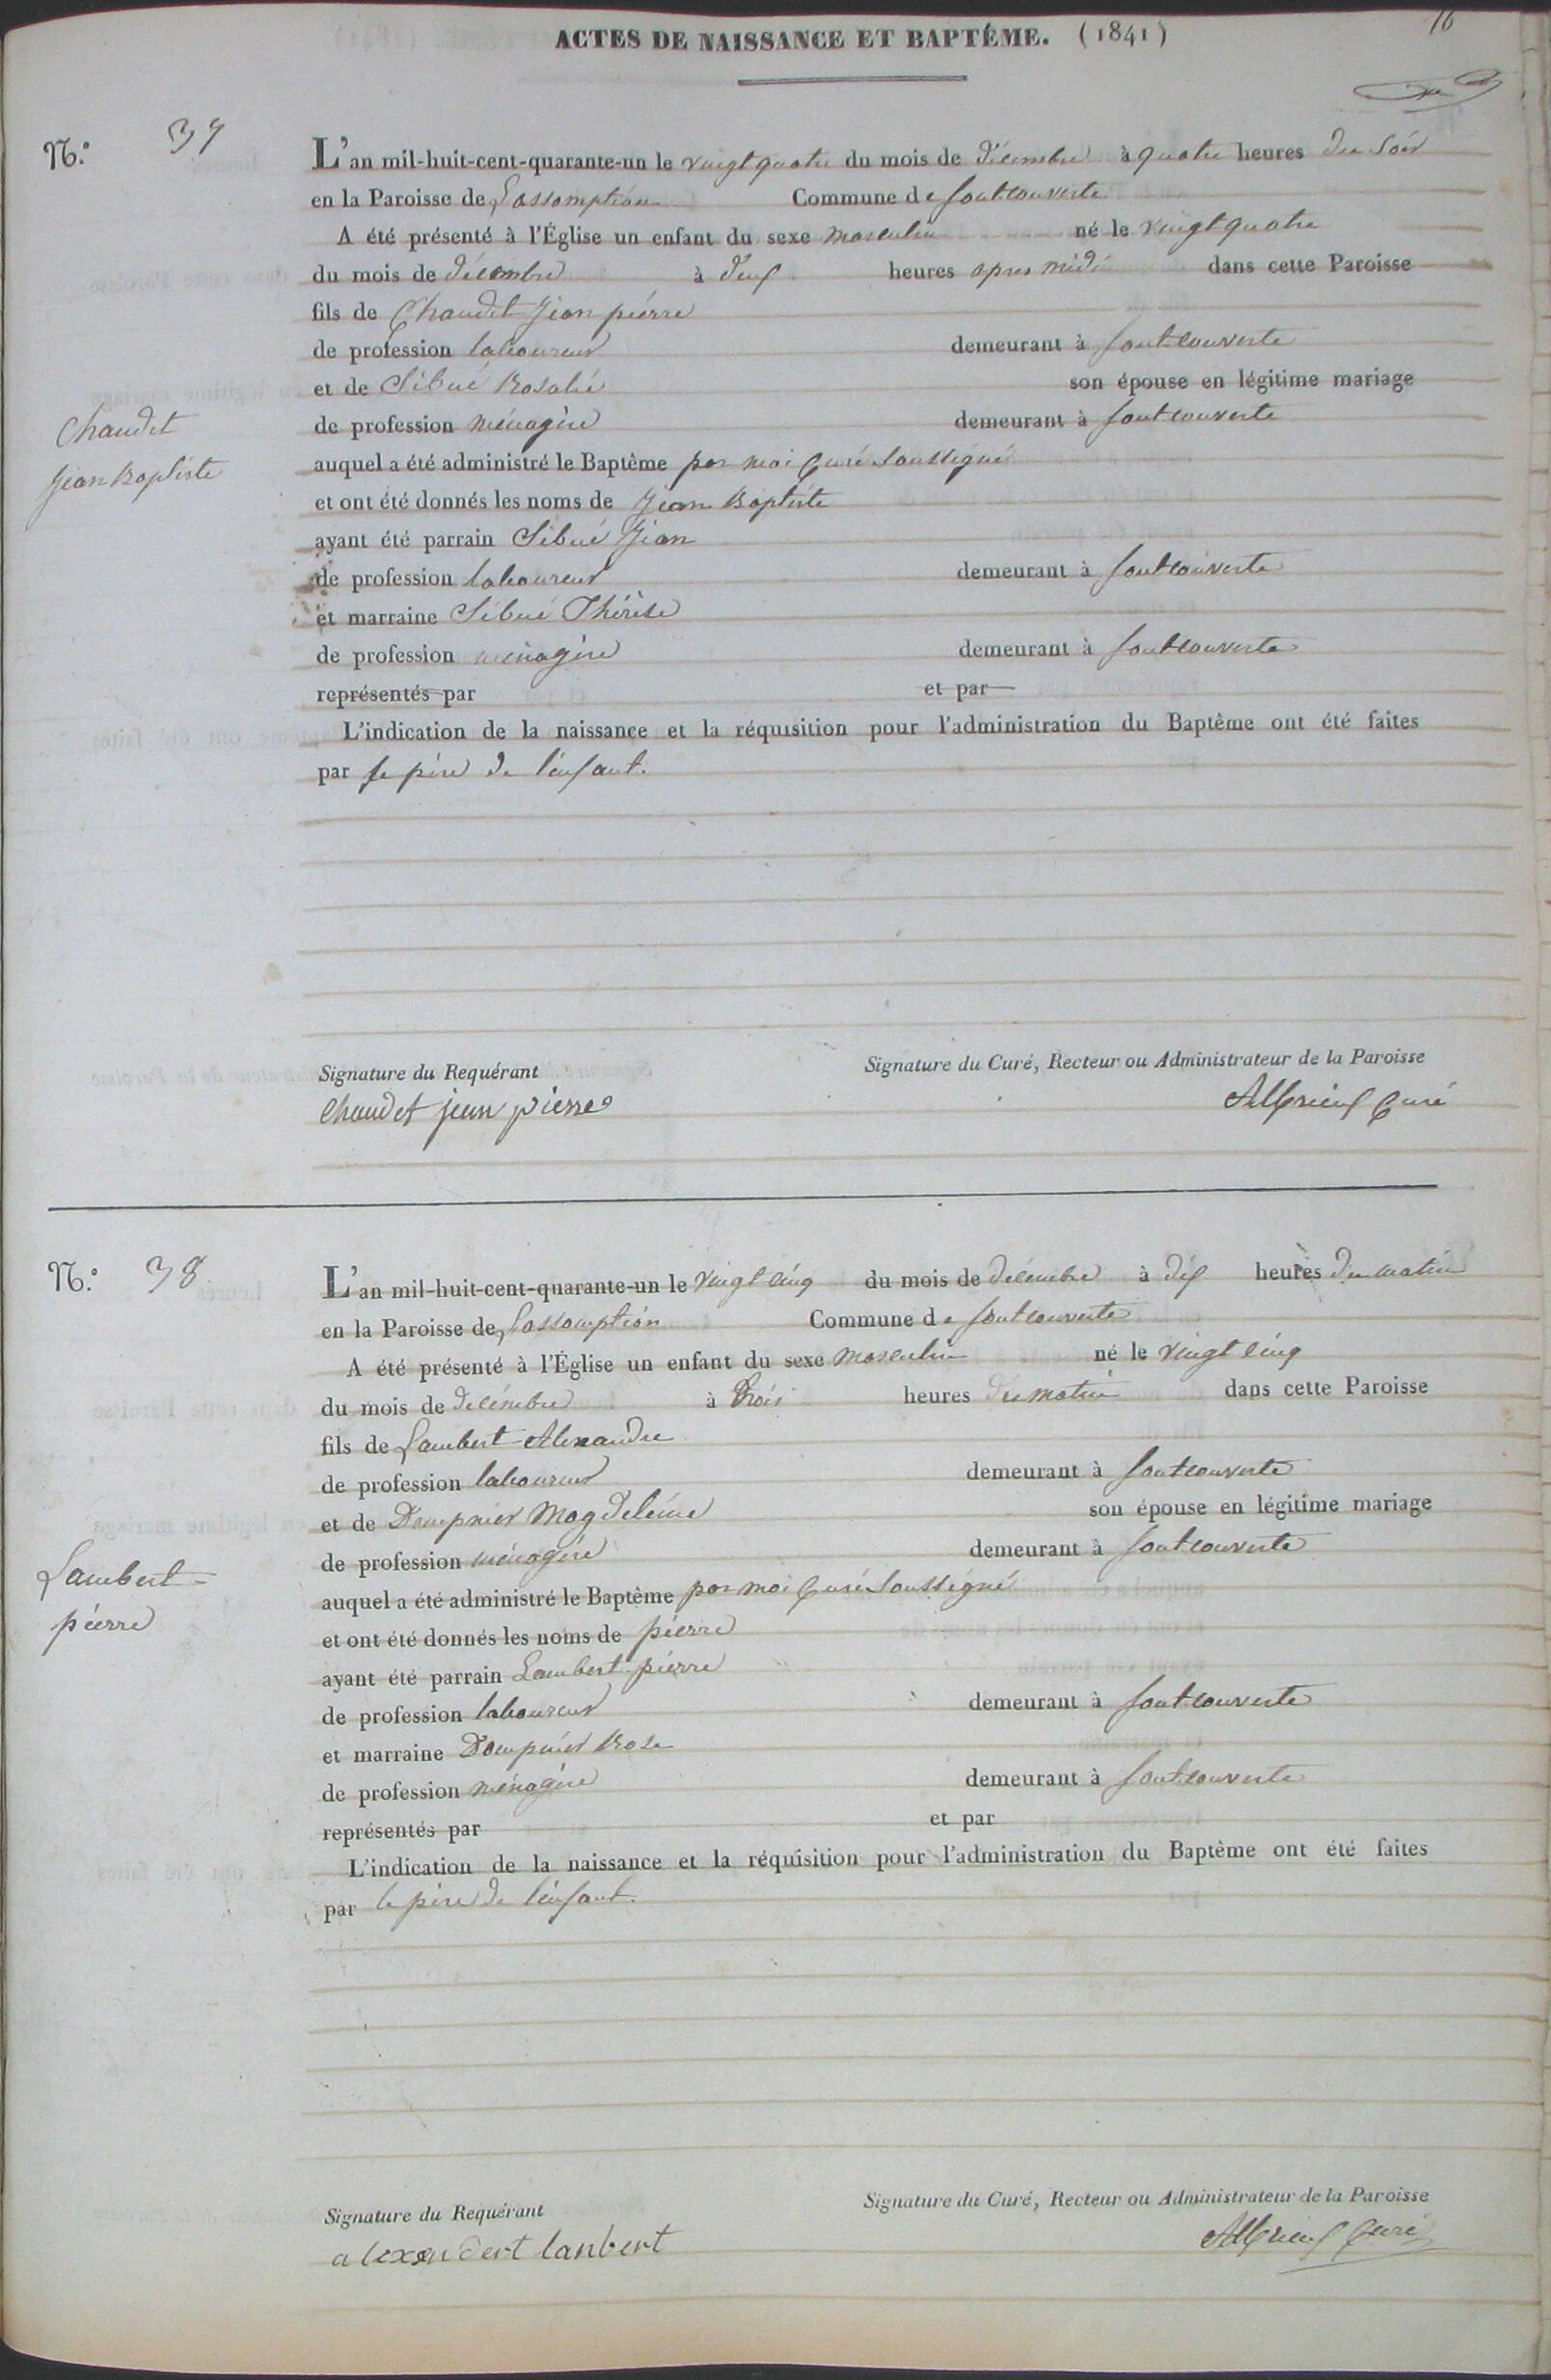 ACTES DE NAISSANCE ET BAPTÊME. (1841) 16
N.° 37
L'an mil-huit-cent-quarante-un le vingt quatre du mois de décembre à quatre heures du soir
en la Paroisse de Lassomption Commune de fontcouverte
A été présenté à l'Église un enfant du sexe masculin né le vingt quatre
du mois de décembre à deux heures apres midi dans cette Paroisse
fils de Chaudet Jean piérre
de profession laboureur demeurant à fontcouverte
et de Sibué Rosalie son épouse en légitime mariage
Chaudet
Jean Baptiste
de profession ménagère demeurant à fontcouverte
auquel a été administré le Baptême par moi Curé soussigné
et ont été donnés les noms de Jean Baptiste
ayant été parrain Sibué Jean
de profession laboureur demeurant à fontcouverte
et marraine Sibué Thérèse
de profession ménagère demeurant à fontcouverte
représentés par et par
L'indication de la naissance et la réquisition pour l'administration du Baptême ont été faites
par le père de l'enfant.
Signature du Requérant Signature du Curé, Recteur ou Administrateur de la Paroisse
Chaudet jean pierre Albrieux Curé
N.° 38
L'an mil-huit-cent-quarante-un le vingt cinq du mois de décembre à dix heures du matin
en la Paroisse de Lassomption Commune de fontcouverte
A été présenté à l'Église un enfant du sexe masculin né le vingt cinq
du mois de décembre à trois heures du matin dans cette Paroisse
fils de Lambert Alexandre
de profession laboureur demeurant à fontcouverte
et de Dompnier Magdeleine son épouse en légitime mariage
Lambert
piérre
de profession ménagère demeurant à fontcouverte
auquel a été administré le Baptême par moi Curé soussigné
et ont été donnés les noms de piérre
ayant été parrain Lambert piérre
de profession laboureur demeurant à fontcouverte
et marraine Dompnier Rose
de profession ménagère demeurant à fontcouverte
représentés par et par
L'indication de la naissance et la réquisition pour l'administration du Baptême ont été faites
par le père de l'enfant.
Signature du Requérant Signature du Curé, Recteur ou Administrateur de la Paroisse
alexendert lanbert Albrieux Curé